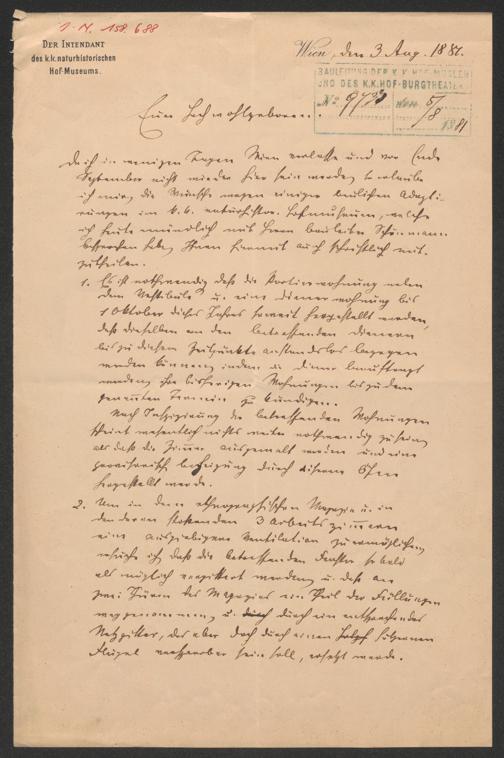 I. N. 158.688
DER INTENDANT
des k.k. naturhistorischen
Hof-Museums.
Wien, den 3 Aug. 1881.
BAULEITUNG DER K.K. HOF-MUSEEN
UND DES K.K. HOF-BURGTHEATER
No 9733 den 5/8
1881
Euer Hochwohlgeboren.
Da ich in wenigen Tagen Wien verlasse und vor Ende
September nicht wieder hier sein werde, so erlaube
ich mir, die Wünsche wegen einiger baulichen Adapti-
rungen im k. k. naturhistor. Hofmuseum, welche
ich heute mündlich mit Herrn Bauleiter
besprochen habe, Ihnen hiemit auch schriftlich mit-
zutheilen.
1. Es ist nothwendig daß die Portierwohnung neben
dem Vestibule u. eine Dienerwohnung bis
1 Oktober dieses Jahres soweit hergestellt werden,
daß dieselben von den betreffenden Dienern
bis zu diesem Zeitpunkte anstandslos bezogen
werden können, indem die Diener beauftragt
werden, ihre bisherigen Wohnungen bis zu dem
genannten Termin zu kündigen.
Nach Besichtigung der betreffenden Wohnungen
scheint wesentlich nichts weiter nothwendig zu sein,
als daß die Zimmer ausgemalt werden und eine
provisorische Beheizung durch eiserne Öfen
hergestellt werde.
2. Um in dem ethnographischen Magazin u. in
den daran stoßenden 3 Arbeitszimmern
eine ausgiebigere Ventilation zu ermöglichen,
ersuche ich daß die betreffenden Fenster so bald
als möglich vergittert werden, u. daß an
zwei Thüren des Magazins ein Theil der Füllungen
weggenommen, u. durch ein entsprechendes
Netzgitter, das aber doch durch einen hölzernen
Flügel verschließbar sein soll, ersetzt werde.